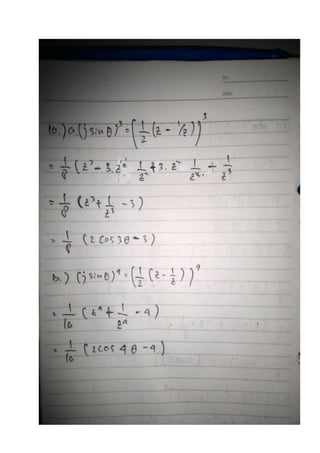 No.
Date
10.) a. (j sin θ)³ = (1/2 (z - 1/z))³
= 1/8 (z³ - 3. z² 1/z + 3. z 1/z² + 1/z³
= 1/8 (z³ + 1/z³ - 3)
= 1/8 (2 cos 3θ - 3)
b.) (j sin θ)⁴ = (1/2 (z - 1/z))⁴
= 1/16 (z⁴ + 1/z⁴ - 4)
= 1/16 (2 cos 4θ - 4)